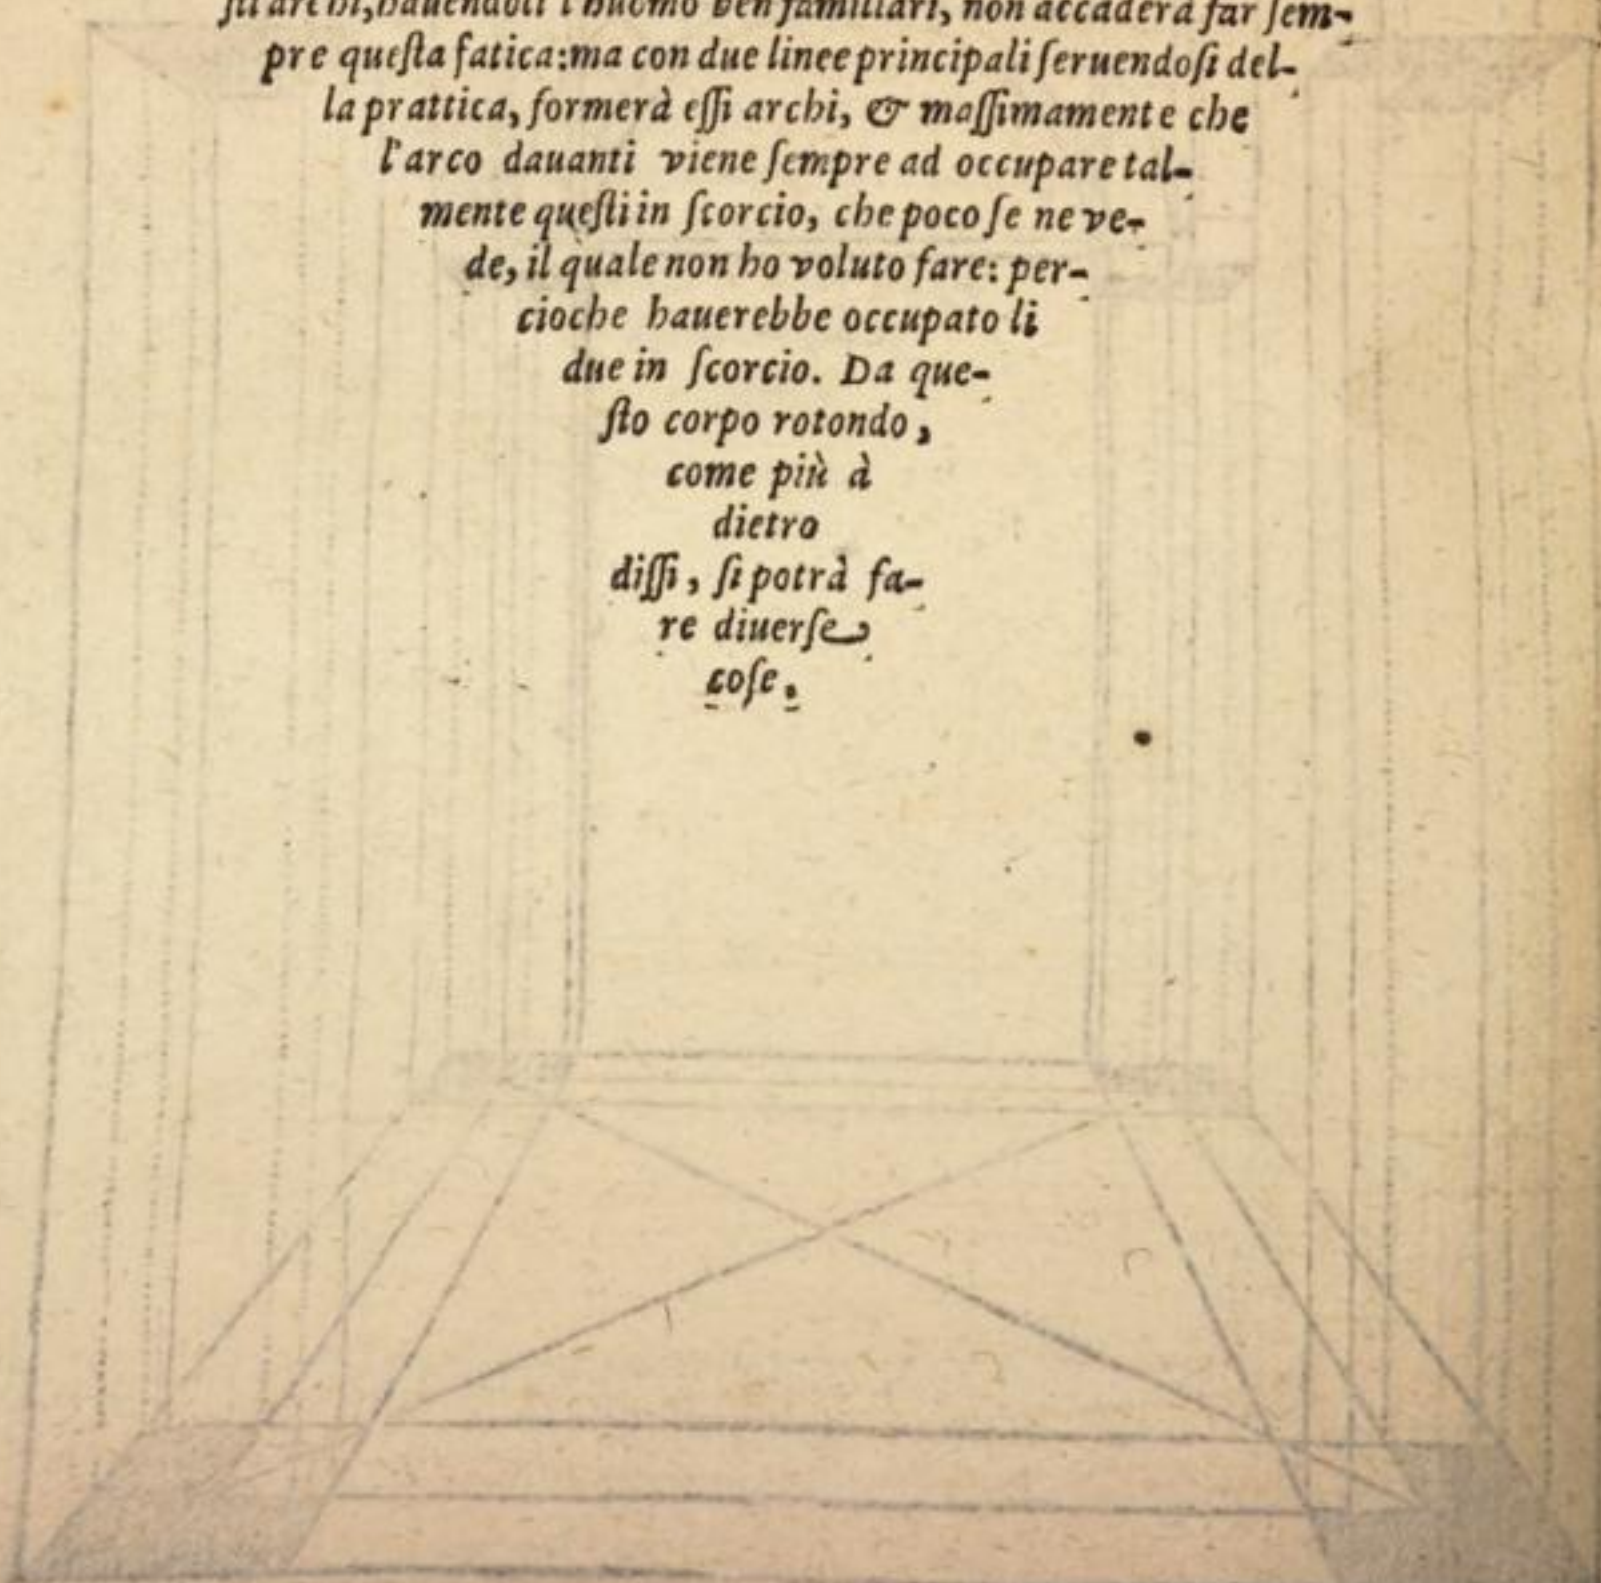 sti archi, hauendoli l'huomo ben familiari, non accaderà far ſem-
pre queſta fatica: ma con due linee principali ſeruendoſi del-
la prattica, formerà eſſi archi, & maſſimamente che
l'arco dauanti viene ſempre ad occupare tal-
mente queſti in ſcorcio, che poco ſe ne ve-
de, il quale non ho voluto fare: per-
cioche hauerebbe occupato li
due in ſcorcio. Da que-
ſto corpo rotondo,
come più à
dietro
diſſi, ſi potrà fa-
re diuerſe
coſe.